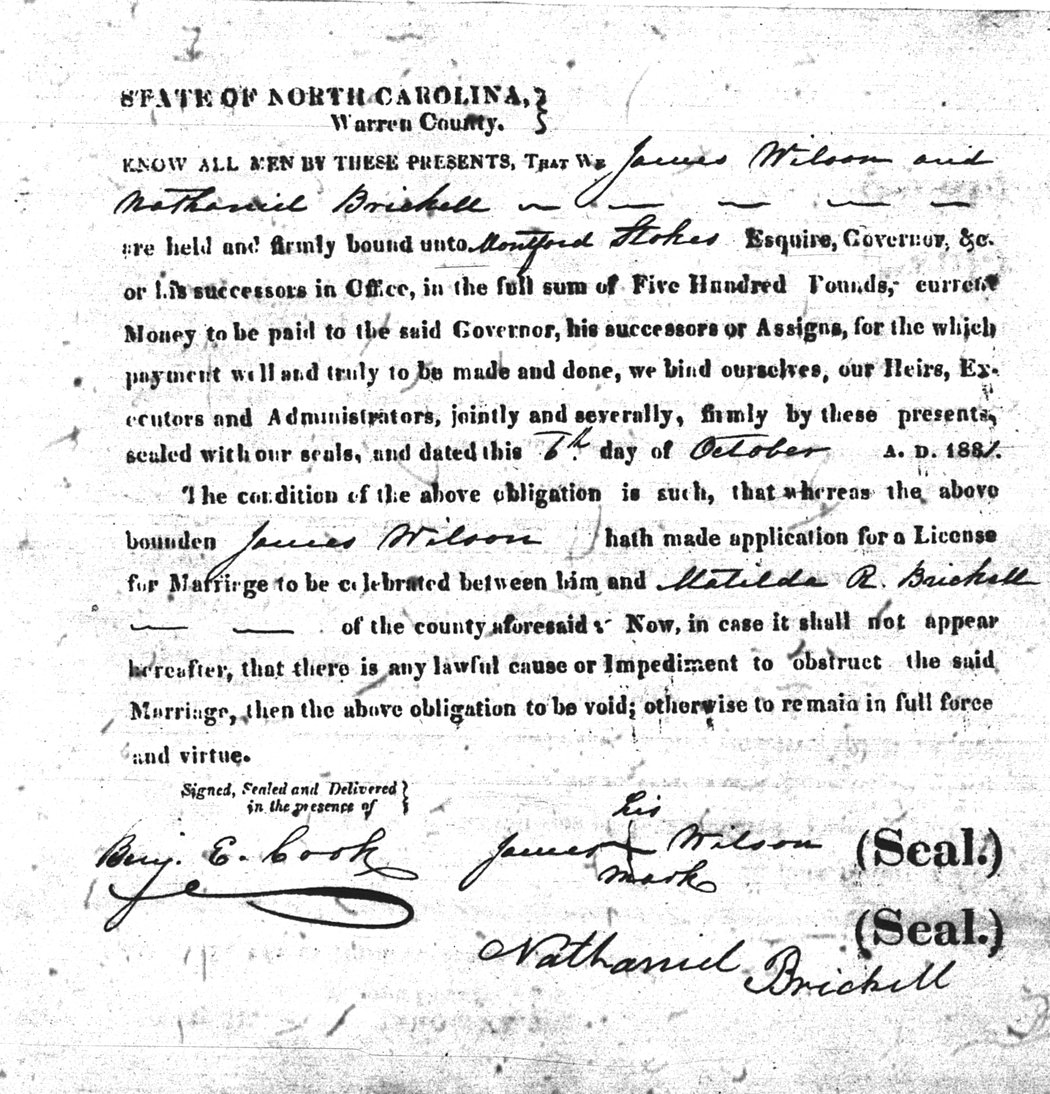 STATE OF NORTH CAROLINA,
Warren County.
KNOW ALL MEN BY THESE PRESENTS, THAT WE James Wilson and
Nathaniel Brickell — — — — —
are held and firmly bound unto Montford Stokes Esquire, Governor, &c.
or his successors in Office, in the full sum of Five Hundred Pounds, current
Money to be paid to the said Governor, his successors or Assigns, for the which
payment well and truly to be made and done, we bind ourselves, our Heirs, Ex-
ecutors and Administrators, jointly and severally, firmly by these presents,
sealed with our seals, and dated this 6th. day of October A. D. 1831.
The condition of the above obligation is such, that whereas the above
bounden James Wilson hath made application for a License
for Marrirge to be celebrated between him and Matilda R. Brickell
— — of the county aforesaid: Now, in case it shall not appear
hereafter, that there is any lawful cause or Impediment to obstruct the said
Marriage, then the above obligation to be void; otherwise to remain in full force
and virtue.
Signed, Sealed and Delivered
in the presence of
his
Benj. E. Cook James + Wilson (Seal.)
mark
(Seal.)
Nathaniel Brickell